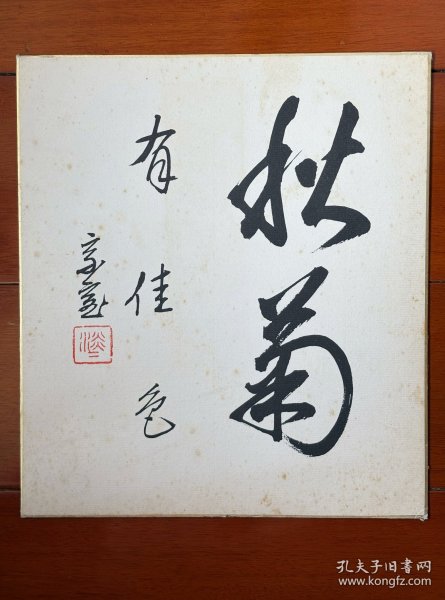 秋菊
有佳色
孔夫子旧书网
www.kongfz.com